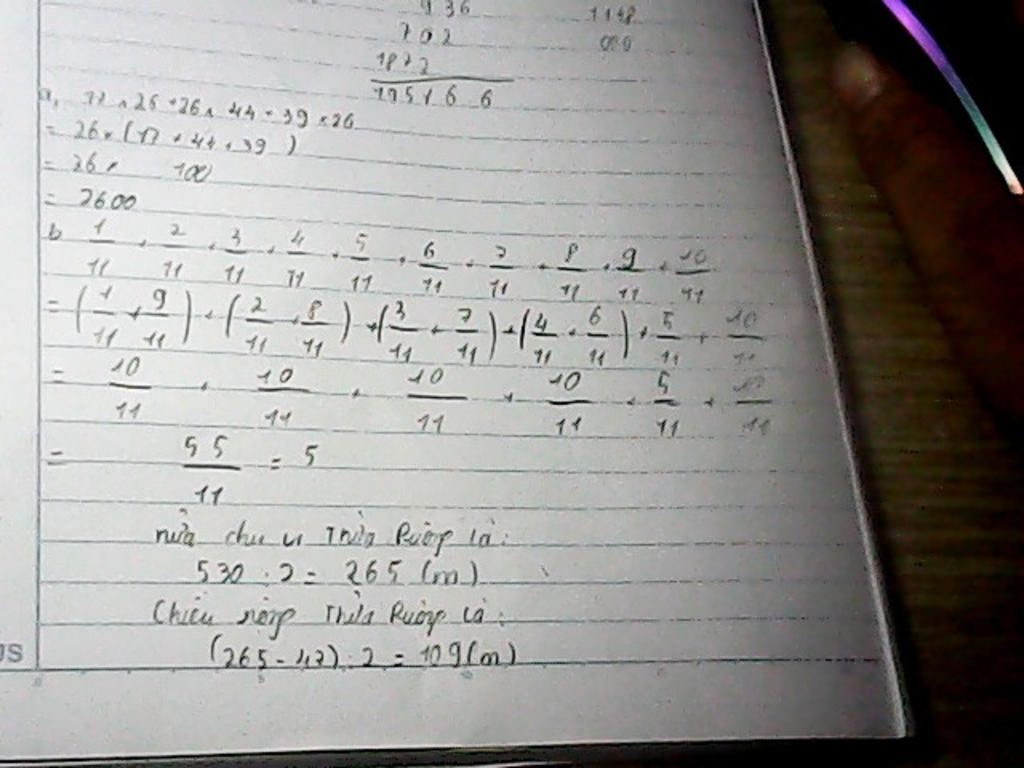 936 1148
702 000
1872
195166
a, 17 × 26 + 26 × 44 + 39 × 26
= 26 × (17 + 44 + 39)
= 26 × 100
= 2600
b 1/11 + 2/11 + 3/11 + 4/11 + 5/11 + 6/11 + 7/11 + 8/11 + 9/11 + 10/11
= (1/11 + 9/11) + (2/11 + 8/11) + (3/11 + 7/11) + (4/11 + 6/11) + 5/11 + 10/11
= 10/11 + 10/11 + 10/11 + 10/11 + 5/11 + 10/11
= 55/11 = 5
nửa chu vi Thửa Ruộng là:
530 : 2 = 265 (m)
Chiều rộng Thửa Ruộng là:
(265 - 47) : 2 = 109 (m)
US